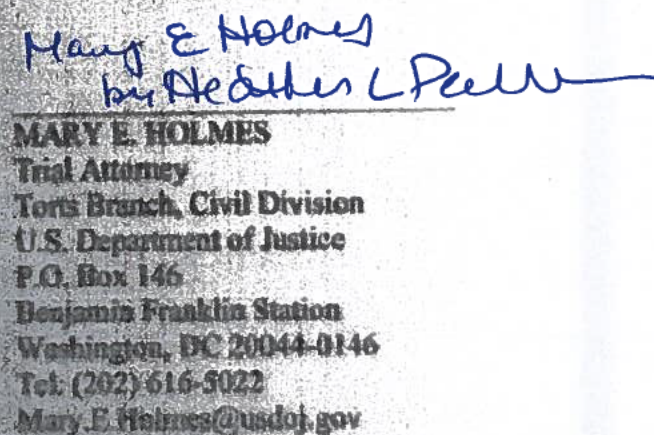 Mary E Holmes
by Heather L
MARY E. HOLMES
Trial Attorney
Torts Branch, Civil Division
U.S. Department of Justice
P.O. Box 146
Benjamin Franklin Station
Washington, DC 20044-0146
Tel: (202) 616-5022
Mary.E.Holmes@usdoj.gov